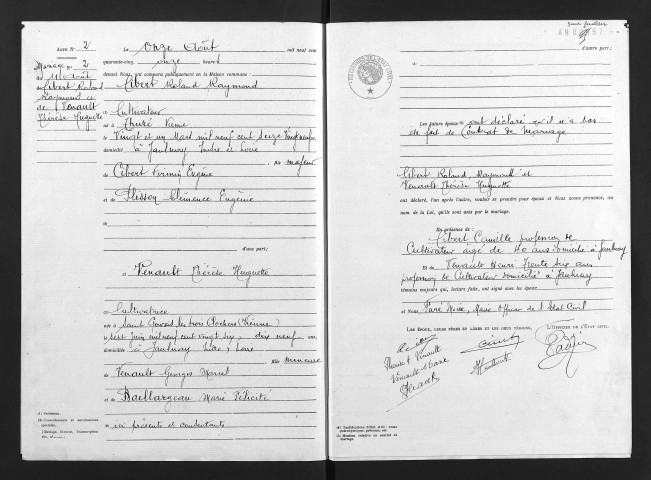 Acte N° 2
Mariage N° 2
du 11 Août
Cibert Roland
Raymond et
de Venault
Thérèse Huguette
Le onze Août mil neuf cent
quarante-cinq, onze heures
devant Nous, ont comparu publiquement en la Maison commune :
Cibert Roland Raymond
Cultivateur
né à Thuré Vienne
Vingt et un Mars mil neuf cent seize
domicilié à Jaulnay Indre et Loire
Fils majeur
de Cibert Firmin Eugène
et de Plisson Clémence Eugénie
d'une part ;
et Venault Thérèse Huguette
Cultivatrice
née à Saint Gervais les trois Clochers (Vienne)
sept juin mil neuf cent vingt six, dix neuf ans
domiciliée à Jaulnay Indre et Loire
Fille mineure
de Venault Georges Marcel
et de Baillargeau Marie Félicité
ici présents et consentants
d'autre part ;
Les futurs époux ont déclaré qu'il n'a pas
été fait de Contrat de Mariage
Cibert Roland, Raymond et
Venault Thérèse Huguette
ont déclaré, l'un après l'autre, vouloir se prendre pour époux et Nous avons prononcé, au
nom de la Loi, qu'ils sont unis par le mariage.
En présence de :
Cibert Camille profession de
Cultivateur âgé de 40 ans domicilié à Jaulnay
Et de Venault Henri trente six ans
profession de Cultivateur domicilié à Jaulnay
témoins majeurs, qui, lecture faite, ont signé avec les époux
et Nous Maire Officier de l'Etat Civil
Les époux, leurs pères et mères et les deux témoins,
L'Officier de l'État Civil